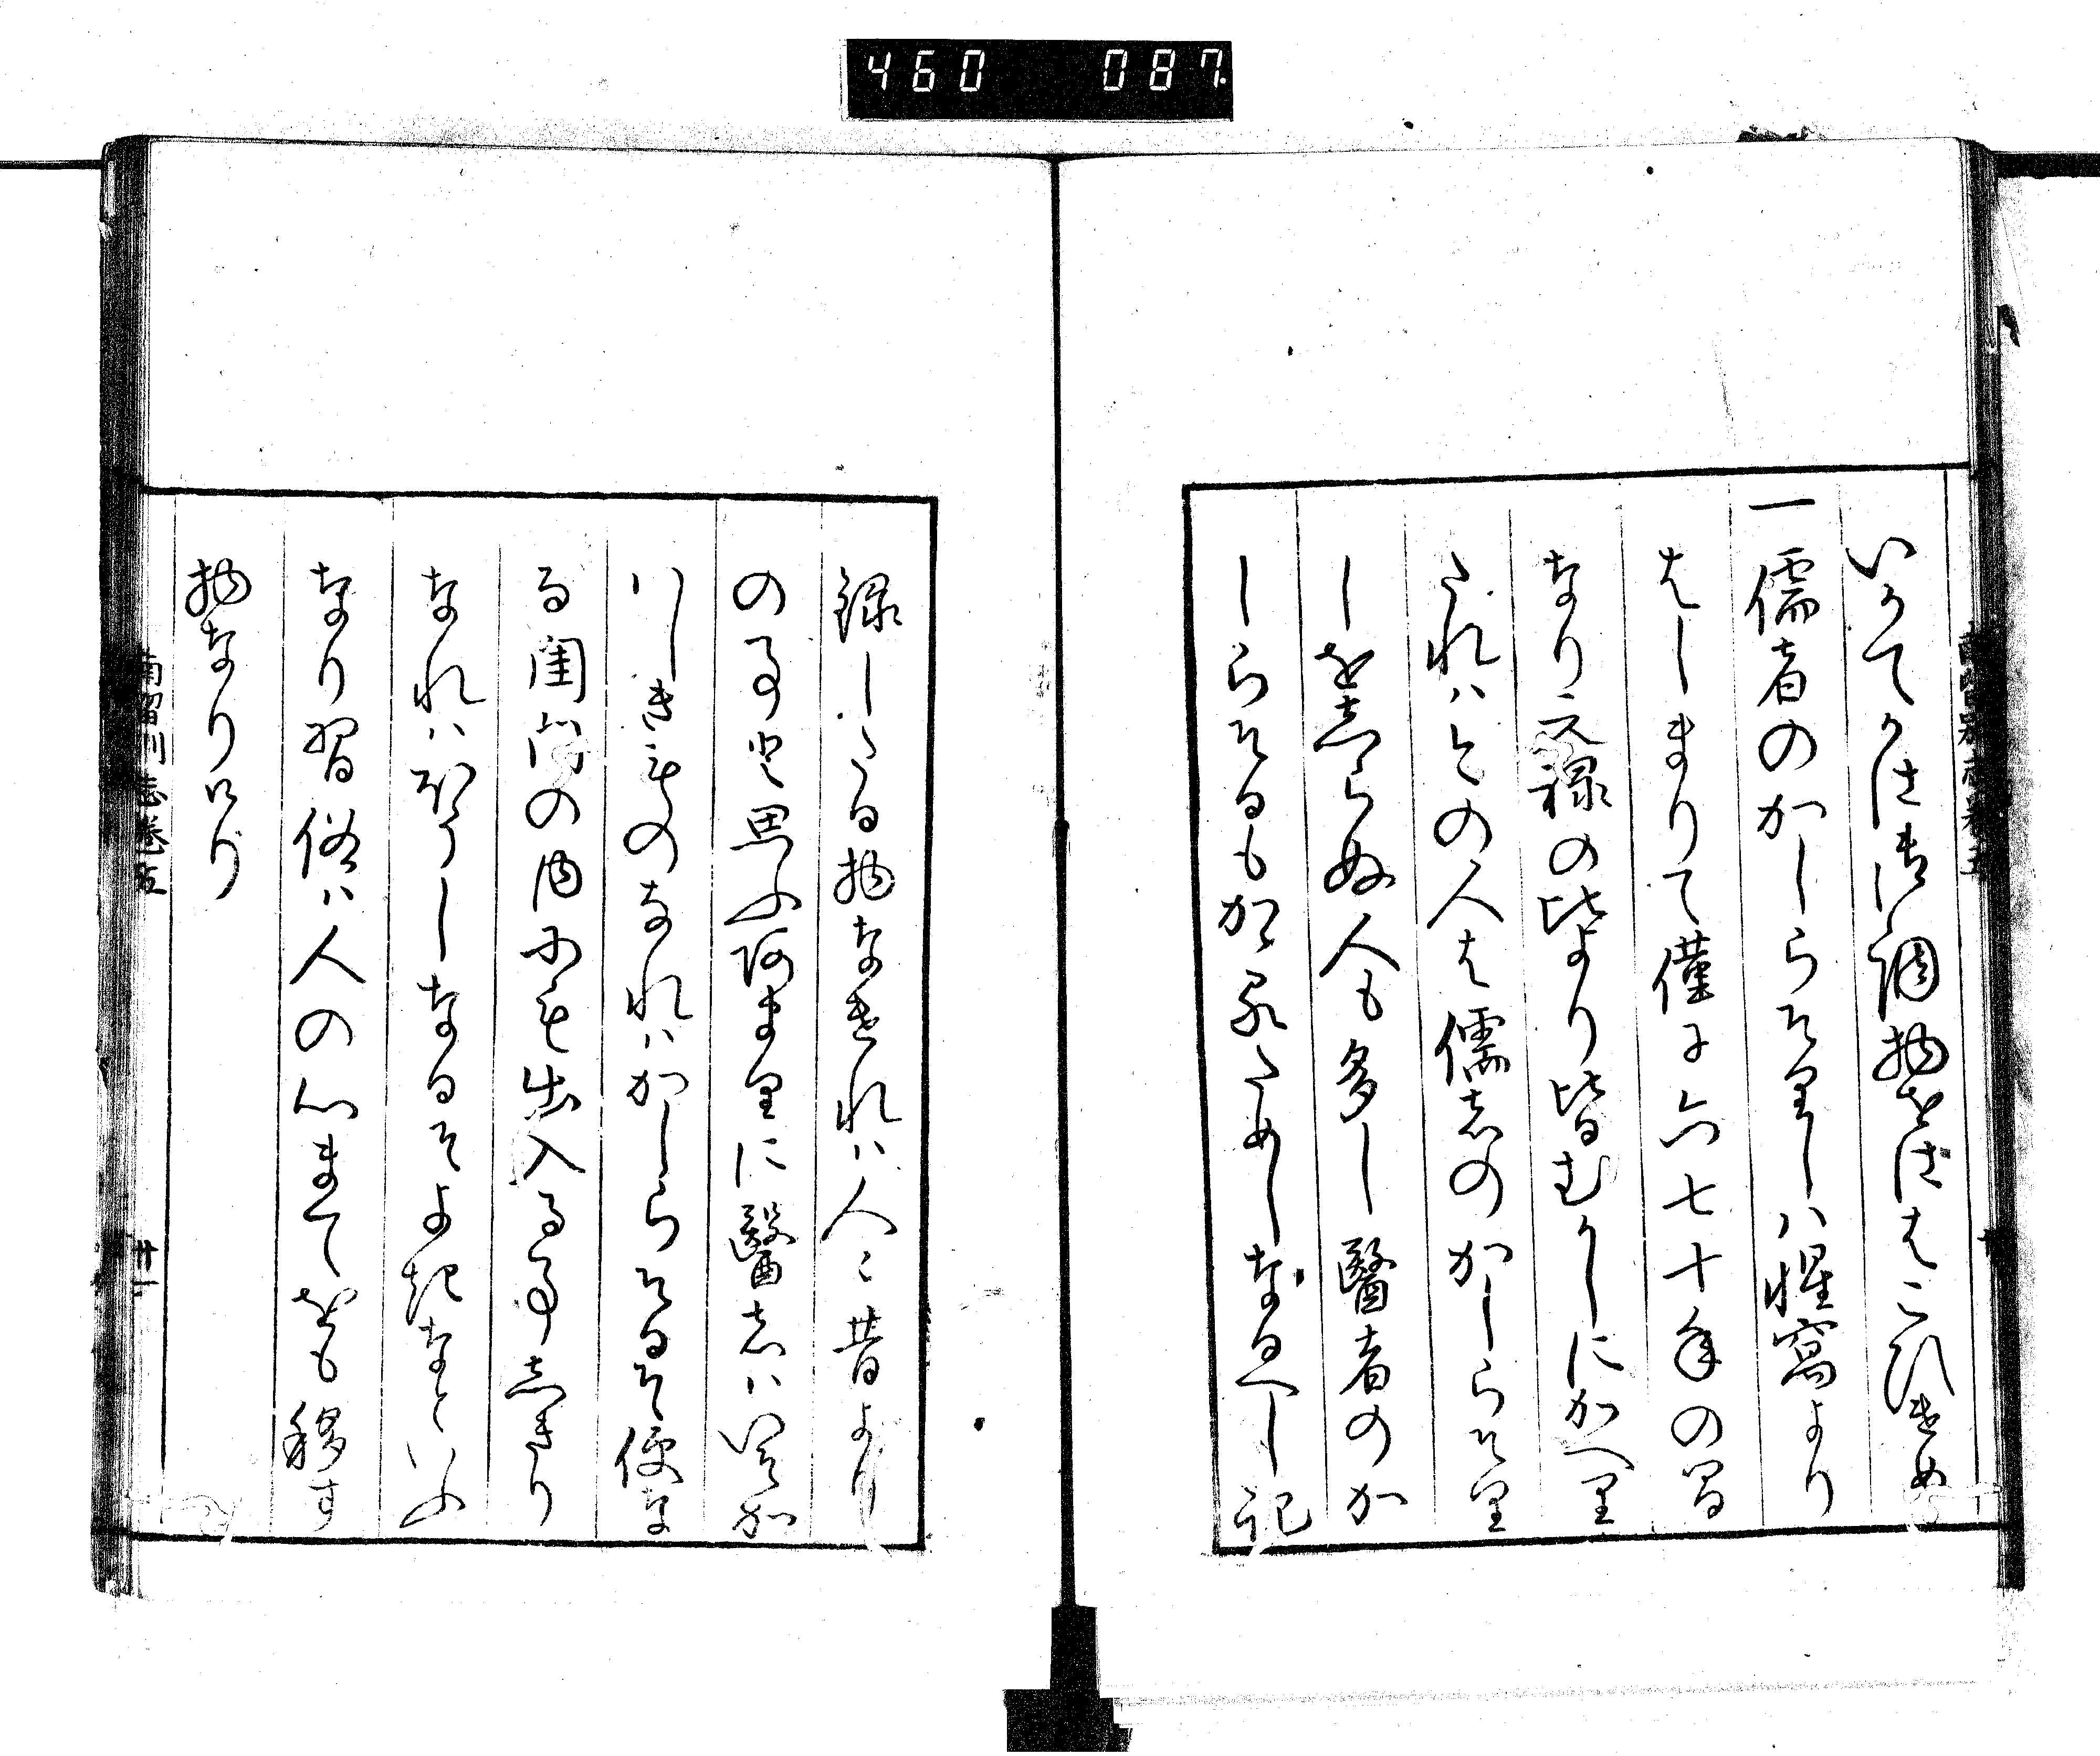 460 087
いかてかは書籍調物をばはこひきぬ
一儒者のかしらそりしハ惺窩より
はしまりて僅に六七十年の間
なり元禄の比より皆むかしにかへり
たれハ今の人は儒者のかしらそり
しを志らぬ人も多し醫者のか
しらそるもかゝるためしなるへし記
録したる物なけれハ人々昔より
の事と思ふ阿まりに醫者ハいそか
ハしきものなれハかしらそるそ便な
る閨門の内にも出入る事志きり
なれハほうしなるそよきなといふ
なり習俗ハ人の心まてをも移す
物なりけり
南留別志巻五
廿一